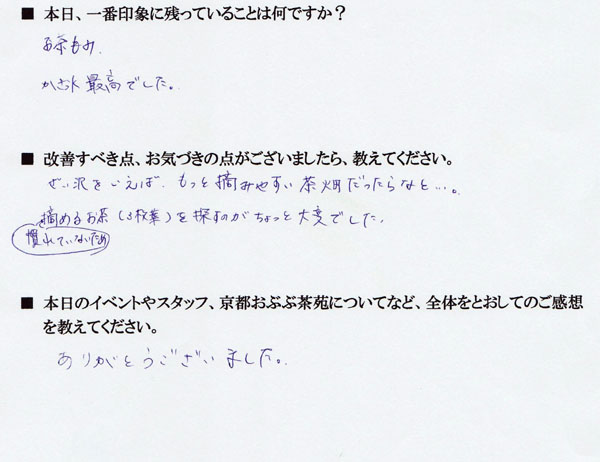 ■ 本日、一番印象に残っていることは何ですか？
お茶もみ.
かき氷 最高でした。
■ 改善すべき点、お気づきの点がございましたら、教えてください。
ぜい沢をいえば、もっと摘みやすい茶畑だったらなと…。
摘めるお茶（3枚葉）を探すのがちょっと大変でした。
慣れていないため
■ 本日のイベントやスタッフ、京都おぶぶ茶苑についてなど、全体をとおしてのご感想
を教えてください。
ありがとうございました。